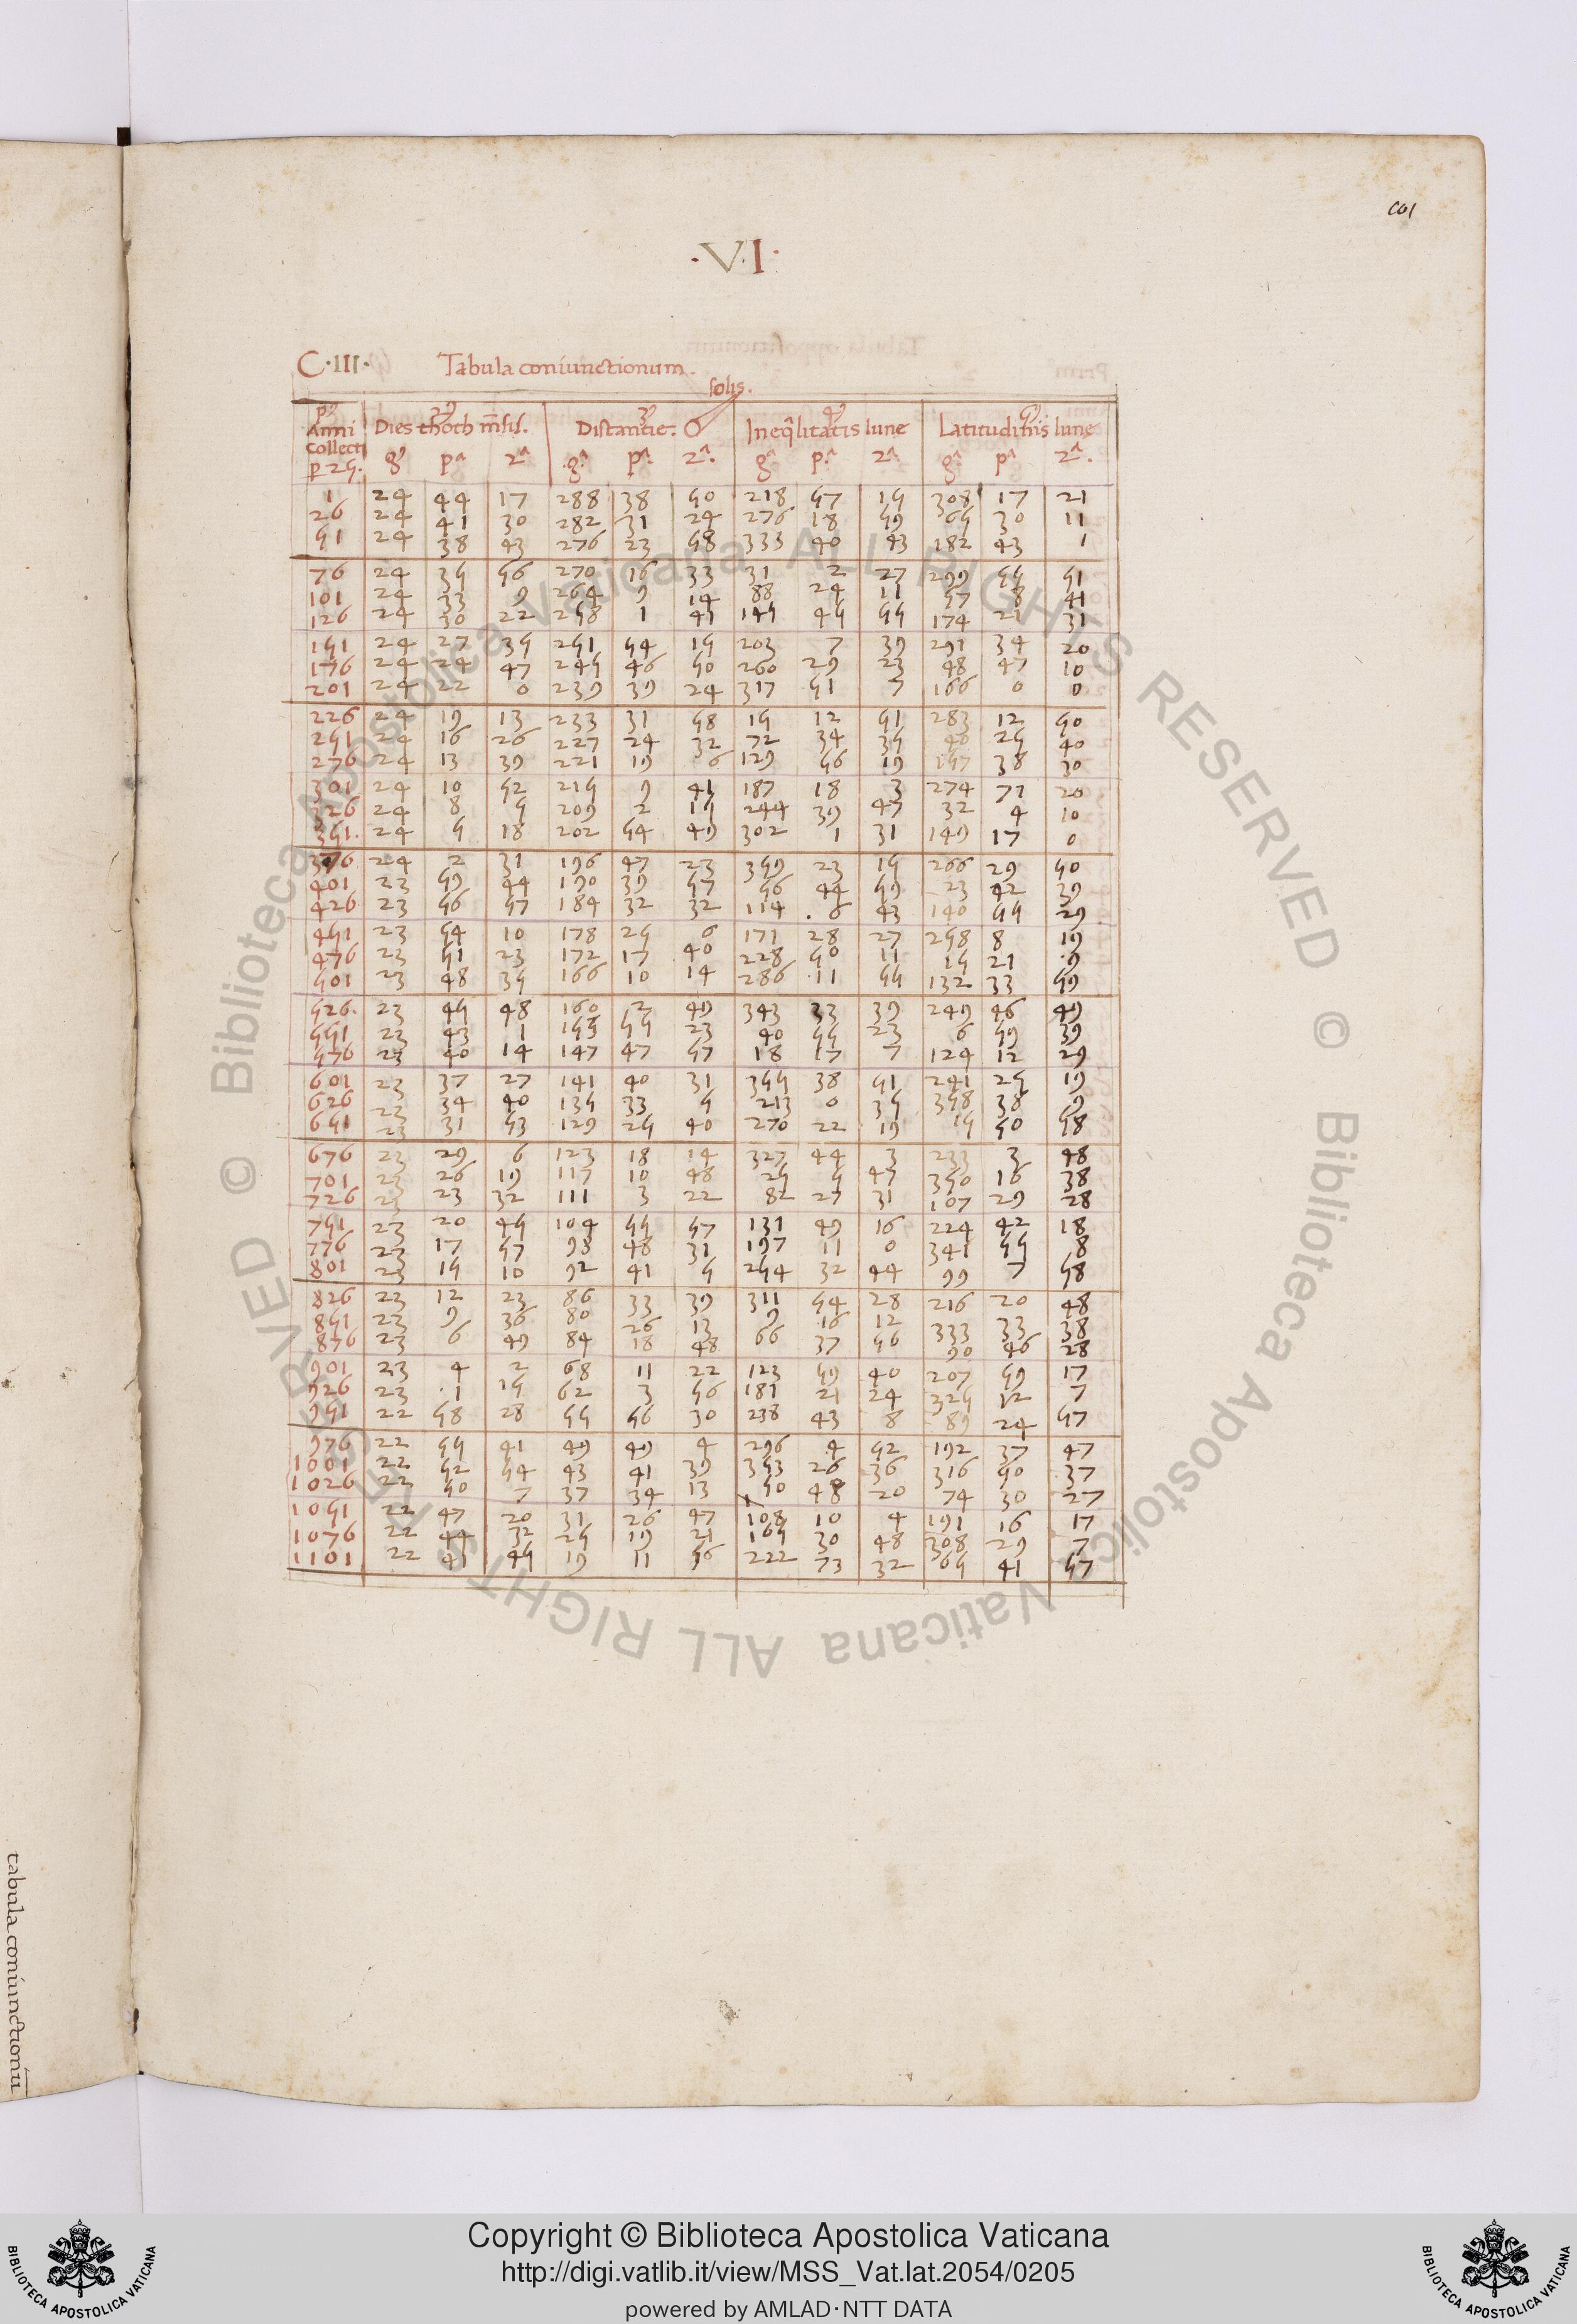 COI
·V·I·
C·III· Tabula coniunctionum.
solis.
Anni Collecti p 25. Dies thoth m̄sis. Distantie. Ineq̄litatis lune Latitudinis lune
gᵃ pᵃ 2ᵃ gᵃ pᵃ 2ᵃ gᵃ pᵃ 2ᵃ gᵃ pᵃ 2ᵃ
1 24 44 17 288 38 50 218 57 15 308 17 21
26 24 41 30 282 31 24 276 18 59 65 30 11
51 24 38 43 276 23 58 333 40 43 182 43 1
76 24 35 56 270 16 33 31 2 27 299 55 51
101 24 33 9 264 9 14 88 24 11 57 8 41
126 24 30 22 258 1 41 145 45 55 174 21 31
151 24 27 35 251 54 15 203 7 39 291 34 20
176 24 24 47 245 46 50 260 29 23 48 47 10
201 24 22 0 239 39 24 317 51 7 166 0 0
226 24 19 13 233 31 58 15 12 51 283 12 50
251 24 16 26 227 24 32 72 34 35 40 25 40
276 24 13 39 221 19 6 129 56 19 157 38 30
301 24 10 52 215 9 41 187 18 3 274 71 20
326 24 8 5 209 2 15 244 39 47 32 4 10
351 24 5 18 202 54 49 302 1 31 149 17 0
376 24 2 31 196 47 23 359 23 15 266 29 50
401 23 59 44 190 39 57 56 44 59 23 42 39
426 23 56 57 184 32 32 114 6 43 140 55 29
451 23 54 10 178 25 6 171 28 27 258 8 19
476 23 51 23 172 17 40 228 50 11 15 21 9
501 23 48 35 166 10 14 286 11 55 132 33 59
526 23 45 48 160 2 49 343 33 39 249 46 49
551 23 43 1 153 55 23 40 55 23 6 59 39
576 23 40 14 147 47 57 18 17 7 124 12 29
601 23 37 27 141 40 31 355 38 51 241 25 19
626 23 34 40 135 33 5 213 0 35 358 38 9
651 23 31 53 129 25 40 270 22 19 15 50 58
676 23 29 6 123 18 14 327 44 3 233 3 48
701 23 26 19 117 10 48 25 5 47 350 16 38
726 23 23 32 111 3 22 82 27 31 107 29 28
751 23 20 45 104 55 57 131 49 16 224 42 18
776 23 17 57 98 48 31 197 11 0 341 55 8
801 23 15 10 92 41 5 254 32 44 99 7 58
826 23 12 23 86 33 39 311 54 28 216 20 48
851 23 9 36 80 26 13 9 16 12 333 33 38
876 23 6 49 84 18 48 66 37 56 90 46 28
901 23 4 2 68 11 22 123 59 40 207 59 17
926 23 1 15 62 3 56 181 21 24 325 12 7
951 22 58 28 55 56 30 238 43 8 89 24 57
976 22 55 41 49 49 4 296 4 52 192 37 47
1001 22 52 54 43 41 39 353 26 36 316 50 37
1026 22 50 7 37 34 13 50 48 20 74 30 27
1051 22 47 20 31 26 47 108 10 4 191 16 17
1076 22 44 32 25 19 21 165 30 48 308 29 7
1101 22 41 45 19 11 56 222 73 32 65 41 57
tabula coniunctionū
© Biblioteca Apostolica Vaticana ALL RIGHTS RESERVED © Biblioteca Apostolica Vaticana ALL RIGHTS RESERVED
BIBLIOTECA APOSTOLICA VATICANA
Copyright © Biblioteca Apostolica Vaticana
http://digi.vatlib.it/view/MSS_Vat.lat.2054/0205
powered by AMLAD·NTT DATA
BIBLIOTECA APOSTOLICA VATICANA